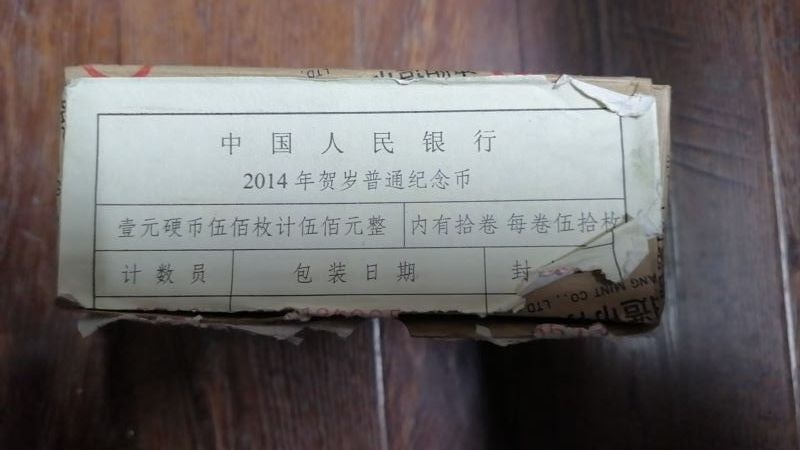 中国人民银行
2014年贺岁普通纪念币
壹元硬币伍佰枚计伍佰元整 内有拾卷 每卷伍拾枚
计数员 包装日期 封
ANG MINT CO., LTD.
LTD.